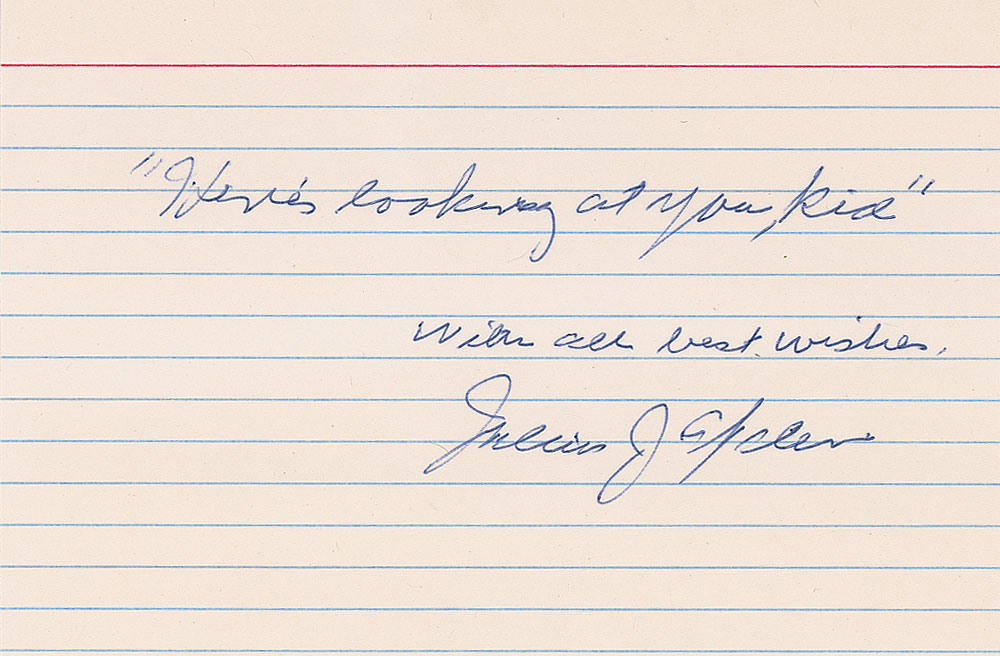 "Here's looking at you, kid"
With all best wishes,
Julius J Epstein